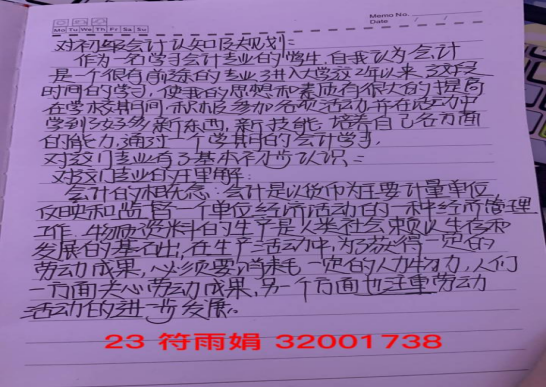 Memo No.
Date / /
Mo Tu We Th Fr Sa Su
对初级会计认知及规划:
作为一名学习会计专业的学生,自我认为会计
是一个很有前途的专业,进入大学这2年以来,这段
时间的学习,使我的思想和素质有很大的提高
在学校期间,积极参加各项活动并在活动中
学到了好多新东西,新技能,培养自己各方面
的能力,通过一个学期的会计学习,
对这门专业有了基本初步认识:
对这门专业的理解:
会计的相概念:会计是以货币为主要计量单位
反映和监督一个单位经济活动的一种经济管理
工作,物质资料的生产是人类社会赖以生存和
发展的基础,在生产活动中,为了获得一定的
劳动成果,必须要消耗一定的人力物力,人们
一方面关心劳动成果,另一个方面也注重劳动
活动的进步发展。
23 符雨娟 32001738